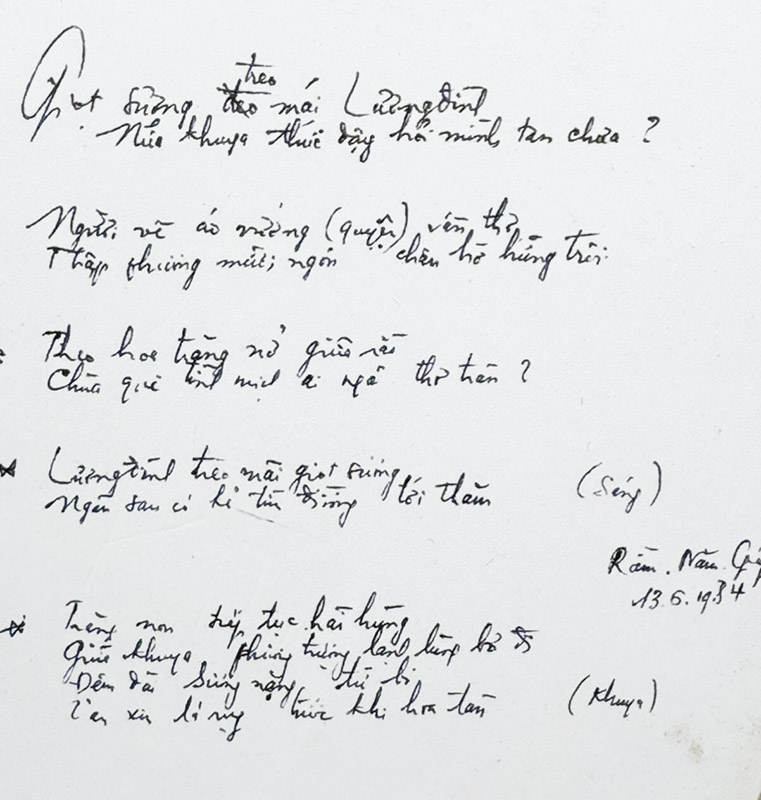 treo
Giọt sương treo mái Lương đình
Nửa khuya thức dậy hỏi mình tan chưa ?
Người về áo vướng (quyện) vần thơ
Thập phương mười ngón chân hờ hững trôi
Theo hoa trăng nở giữa
Chùa quê tịnh mịch ai ngờ thơ trăn ?
Lương đình treo mãi giọt sương
Ngàn sau có kẻ tìm đường tới thăm
(Sáng)
Rằm . Năm . Giáp
13.6.1934
Trăng non tiếp tục hãi hùng
Giữa khuya phương trượng lạnh lùng bỏ đi
Đêm dài sương nặng từ bi
lá rụng trước khi hoa tàn
(Khuya)